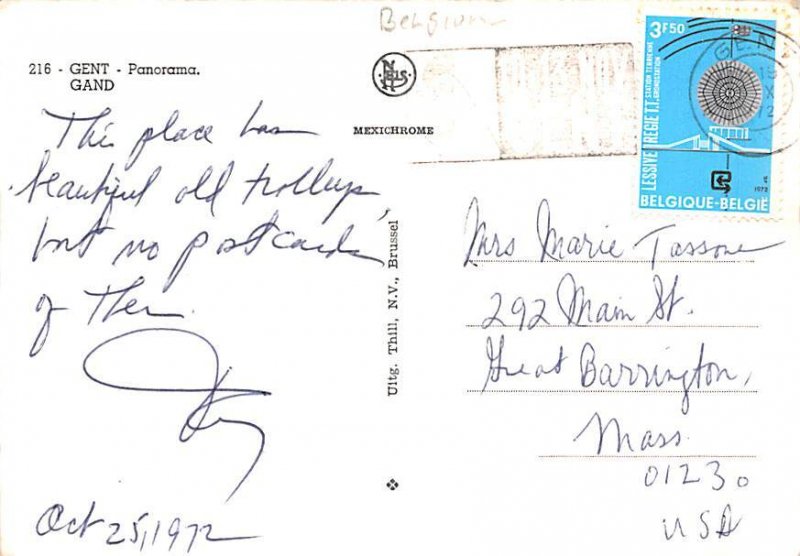 Belgium
216 - GENT - Panorama.
GAND
NELS
MEXICHROME
This place has
beautiful old trolleys,
but no postcards
of them.
Oct 25, 1972
Uitg. Thill, N.V., Brussel
3F50
LESSIVE REGIE T.T.
STATION TERRIENNE
GRONDSTATION
1972
BELGIQUE-BELGIË
GENT
Mrs Marie Tassone
292 Main St.
Great Barrington,
Mass.
01230
USA